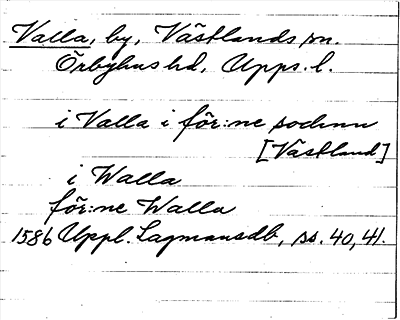 Valla, by, Västlands sn.
Örbyhus hd, Upps. l.
i Valla i för:ne sochnn
[Västland]
i Walla
för:ne Walla
1586 Uppl. Lagmansdb, ss. 40, 41.